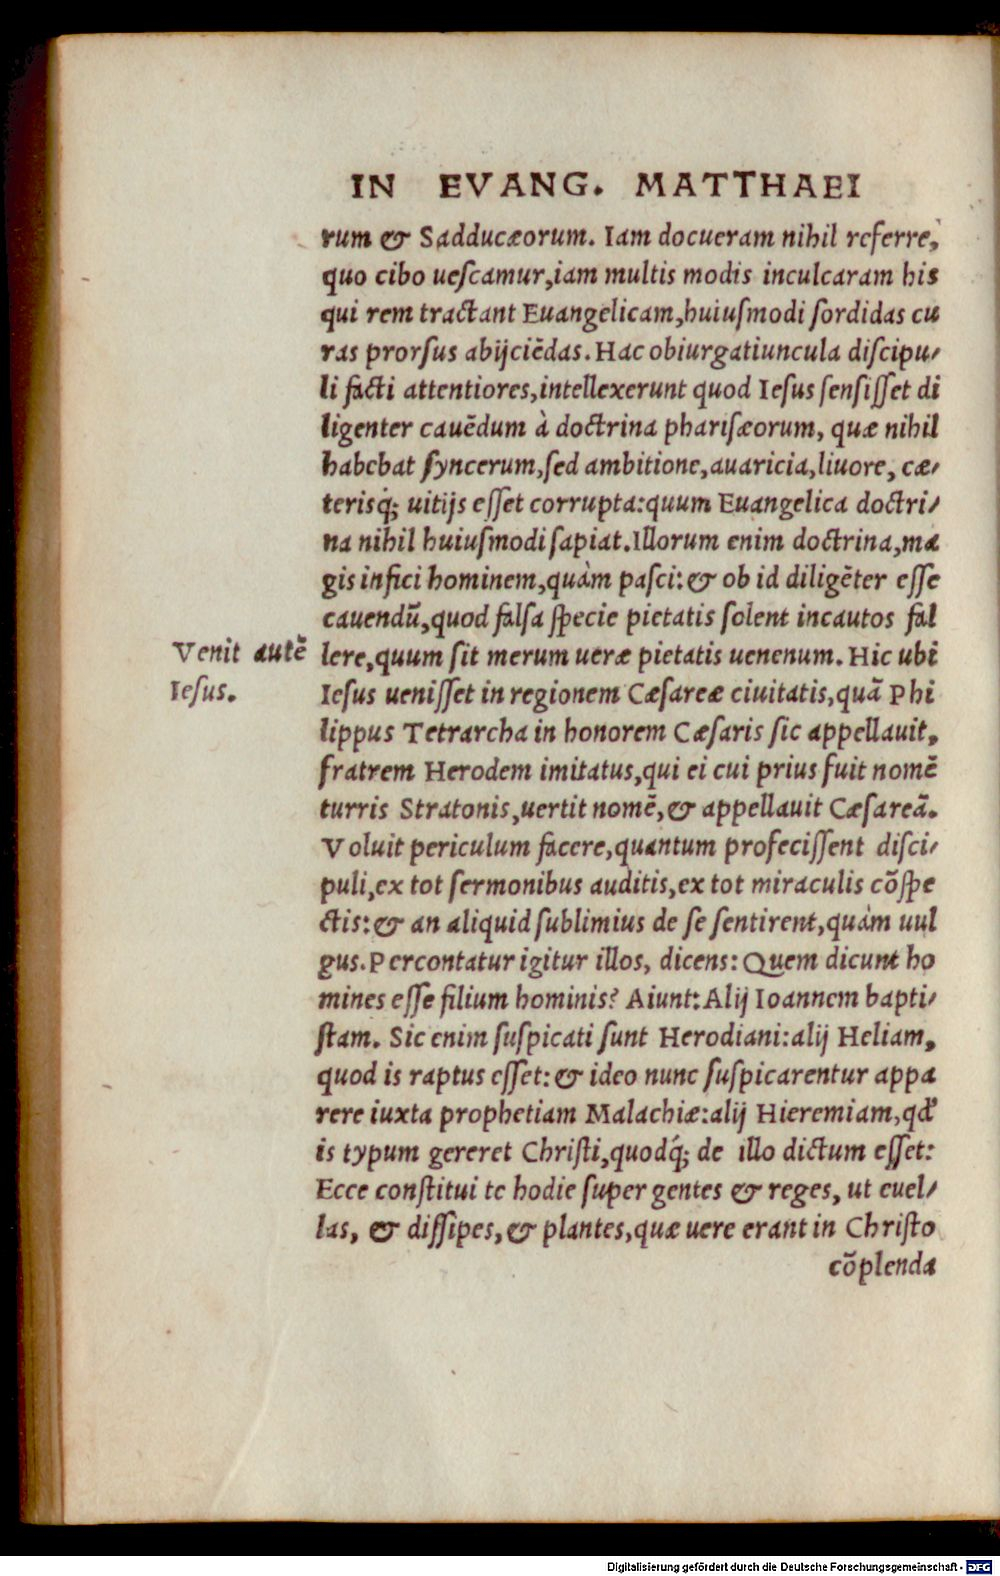 IN EVANG. MATTHAEI
rum & Sadducæorum. Iam docueram nihil referre,
quo cibo uescamur,iam multis modis inculcaram his
qui rem tractant Euangelicam,huiuſmodi ſordidas cu
ras prorſus abijciẽdas. Hac obiurgatiuncula diſcipu⸗
li facti attentiores,intellexerunt quod Ieſus ſenſiſſet di
ligenter cauẽdum à doctrina phariſæorum, quæ nihil
habebat ſyncerum,ſed ambitione,auaricia,liuore, cæ⸗
terisq́; uitijs eſſet corrupta:quum Euangelica doctri⸗
na nihil huiuſmodi ſapiat.Illorum enim doctrina,ma
gis infici hominem,quàm paſci:& ob id diligẽter eſſe
cauendũ,quod falſa ſpecie pietatis ſolent incautos fal
Venit autẽ
Ieſus.
lere,quum ſit merum ueræ pietatis uenenum. Hic ubi
Ieſus ueniſſet in regionem Cæſareæ ciuitatis,quã Phi
lippus Tetrarcha in honorem Cæſaris ſic appellauit,
fratrem Herodem imitatus,qui ei cui prius fuit nomẽ
turris Stratonis,uertit nomẽ,& appellauit Cæſareã.
Voluit periculum facere,quantum profeciſſent diſci⸗
puli,ex tot ſermonibus auditis,ex tot miraculis cõſpe
ctis:& an aliquid ſublimius de ſe ſentirent,quàm uul
gus.Percontatur igitur illos, dicens: Quem dicunt ho
mines eſſe filium hominis? Aiunt: Alij Ioannem bapti⸗
ſtam. Sic enim ſuſpicati ſunt Herodiani:alij Heliam,
quod is raptus eſſet: & ideo nunc ſuſpicarentur appa
rere iuxta prophetiam Malachiæ:alij Hieremiam,qđ
is typum gereret Chriſti,quodq́; de illo dictum eſſet:
Ecce conſtitui te hodie ſuper gentes & reges, ut euel⸗
las, & diſſipes,& plantes,quæ uere erant in Chriſto
cõplenda
Digitalisierung gefördert durch die Deutsche Forschungsgemeinschaft - DFG